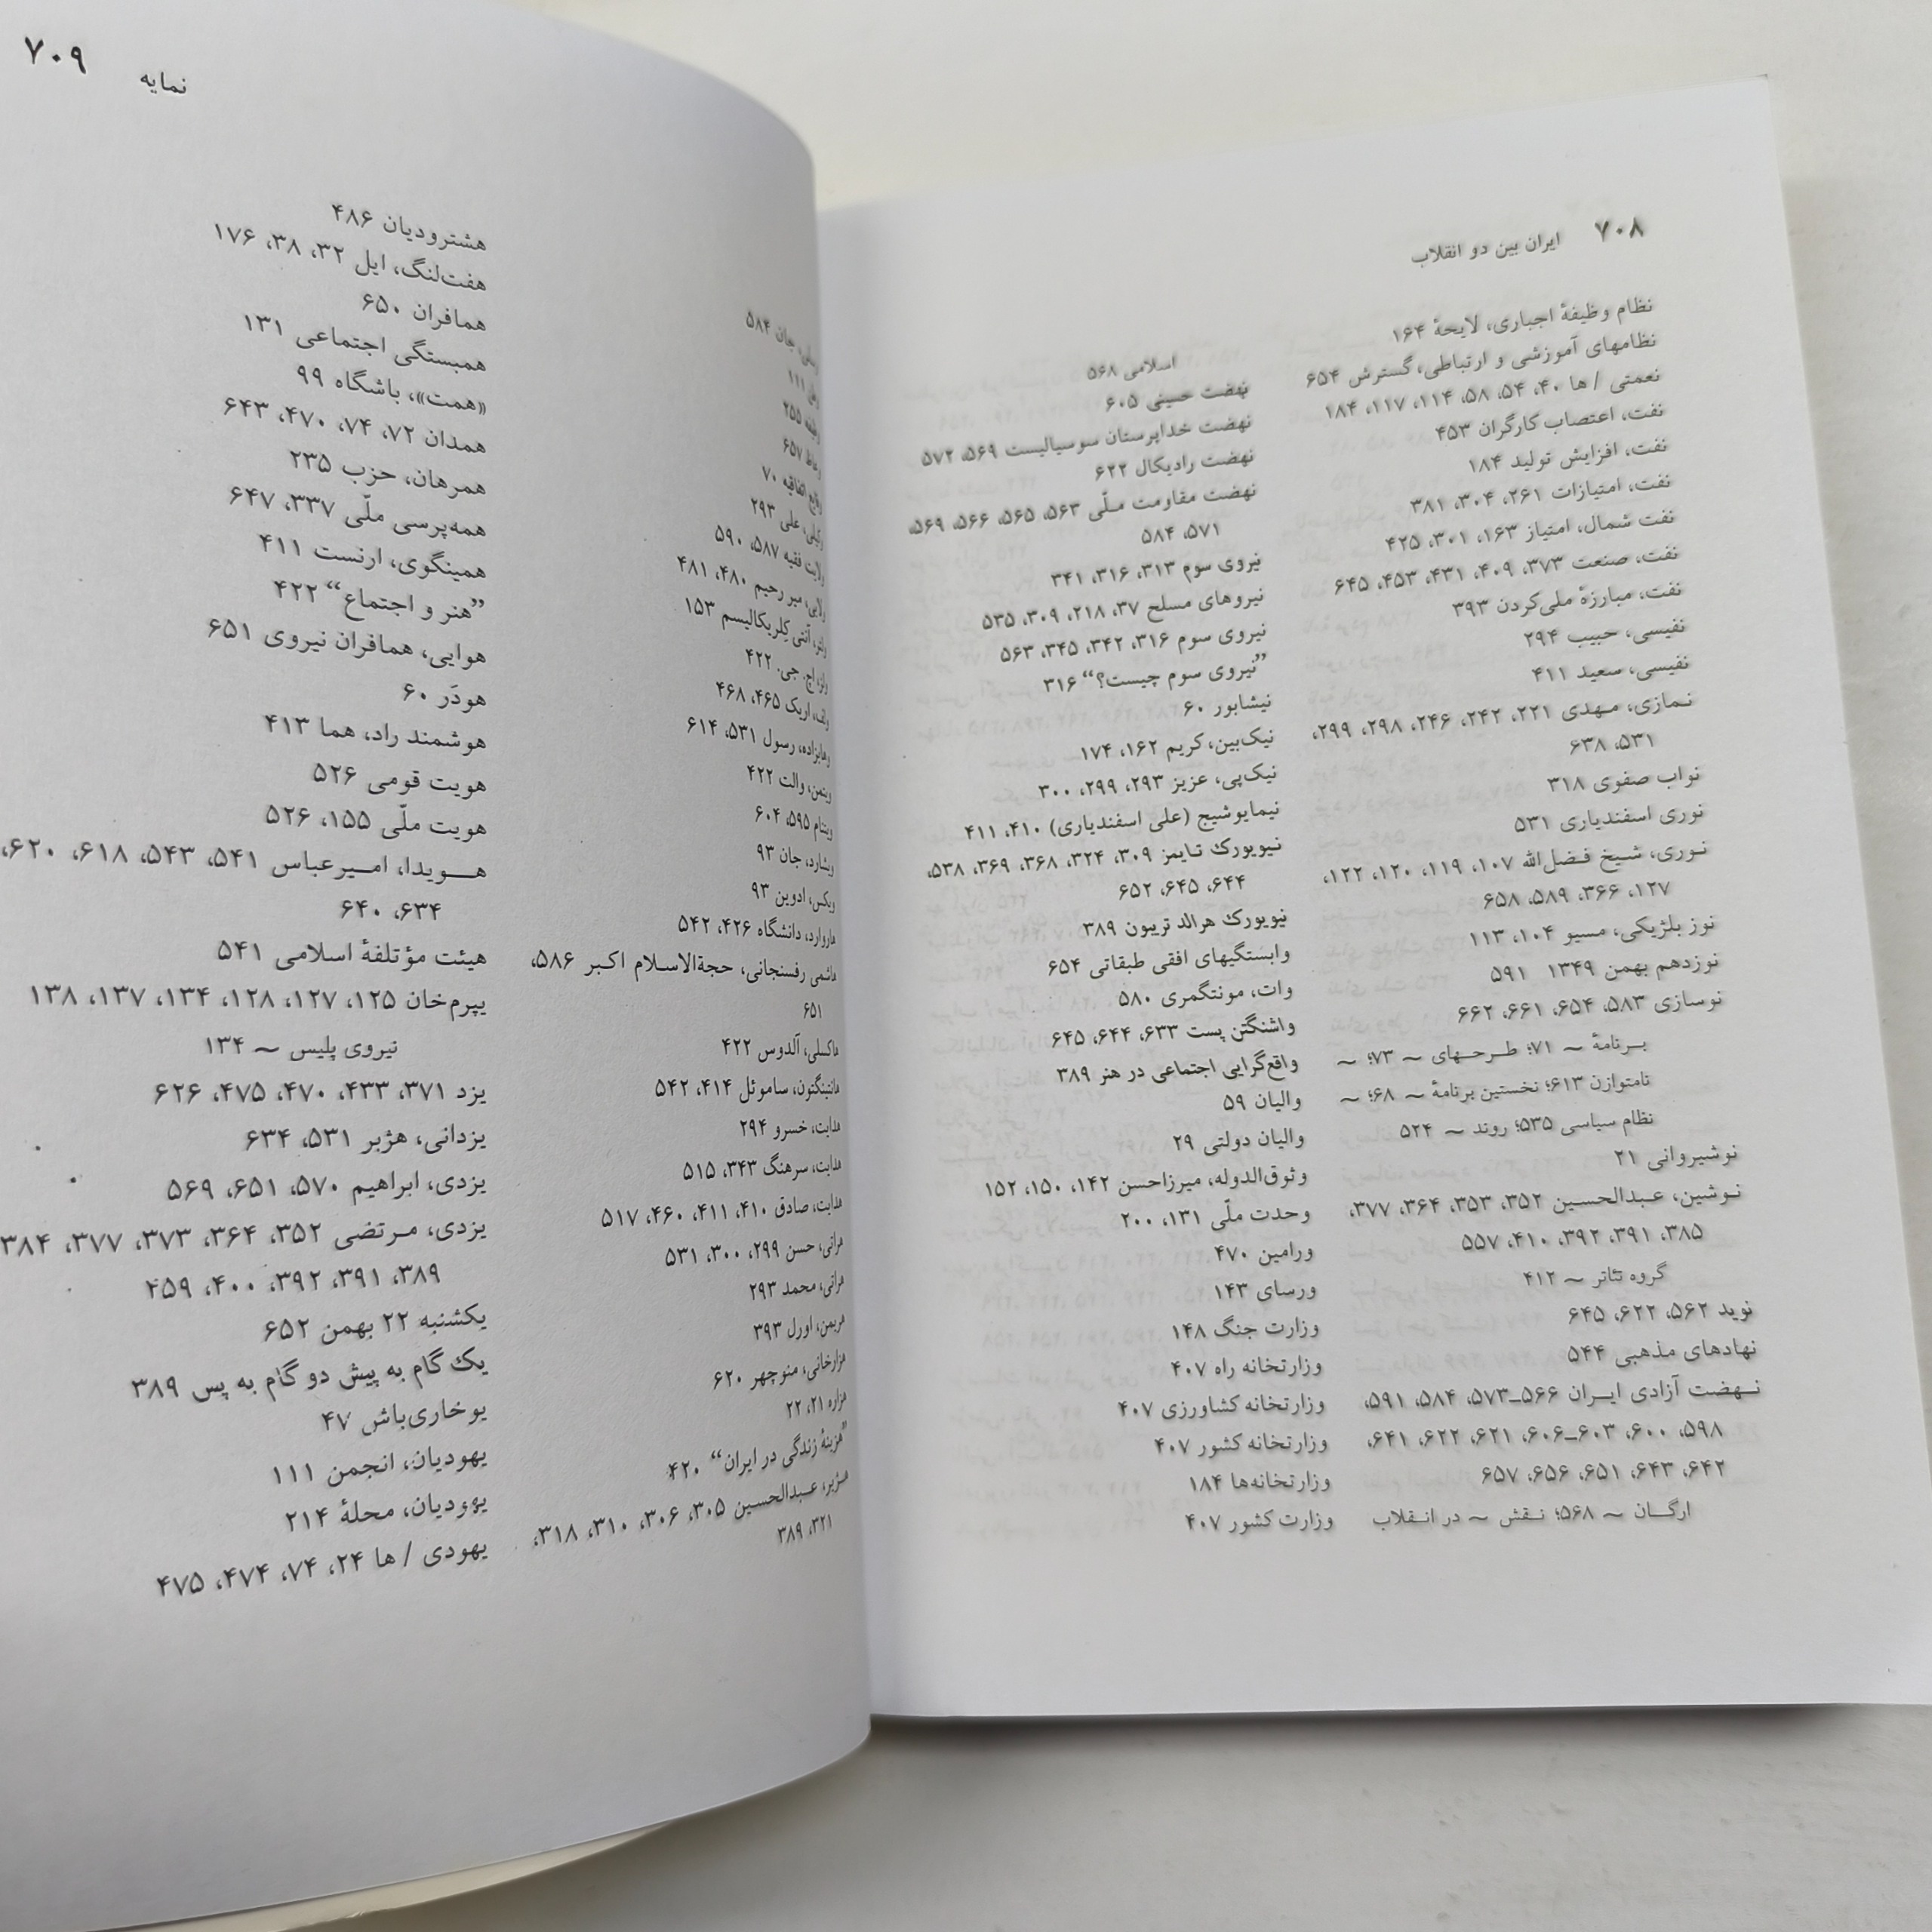 ۷۰۸ ایران بین دو انقلاب
نظام وظیفهٔ اجباری، لایحهٔ ۱۶۴
نظامهای آموزشی و ارتباطی، گسترش ۶۵۴
نعمتی / ها ۴۰، ۵۴، ۵۸، ۱۱۴، ۱۱۷، ۱۸۴
نفت، اعتصاب کارگران ۴۵۳
نفت، افزایش تولید ۱۸۴
نفت، امتیازات ۲۶۱، ۳۰۴، ۳۸۱
نفت شمال، امتیاز ۱۶۳، ۳۰۱، ۴۲۵
نفت، صنعت ۳۷۳، ۴۰۹، ۴۳۱، ۴۵۳، ۶۴۵
نفت، مبارزهٔ ملی‌کردن ۳۹۳
نفیسی، حبیب ۲۹۴
نفیسی، سعید ۴۱۱
نمازی، مهدی ۲۲۱، ۲۴۲، ۲۴۶، ۲۹۸، ۲۹۹،
۵۳۱، ۶۳۸
نواب صفوی ۳۱۸
نوری اسفندیاری ۵۳۱
نوری، شیخ فضل‌الله ۱۰۷، ۱۱۹، ۱۲۰، ۱۲۲،
۱۲۷، ۳۶۶، ۵۸۹، ۶۵۸
نوز بلژیکی، مسیو ۱۰۴، ۱۱۳
نوزدهم بهمن ۱۳۴۹ ۵۹۱
نوسازی ۵۸۳، ۶۵۴، ۶۶۱، ۶۶۲
برنامهٔ ~ ۷۱؛ طرحهای ~ ۷۳؛ ~
نامتوازن ۶۱۳؛ نخستین برنامهٔ ~ ۶۸؛ ~
نظام سیاسی ۵۳۵؛ روند ~ ۵۲۴
نوشیروانی ۲۱
نوشین، عبدالحسین ۳۵۲، ۳۵۳، ۳۶۴، ۳۷۷،
۳۸۵، ۳۹۱، ۳۹۲، ۴۱۰، ۵۵۷
گروه تئاتر ~ ۴۱۲
نوید ۵۶۲، ۶۲۲، ۶۴۵
نهادهای مذهبی ۵۴۴
نهضت آزادی ایران ۵۶۶–۵۷۳، ۵۸۴، ۵۹۱،
۵۹۸، ۶۰۰، ۶۰۳–۶۰۶، ۶۲۱، ۶۲۲، ۶۴۱،
۶۴۲، ۶۴۳، ۶۵۱، ۶۵۶، ۶۵۷
ارگان ~ ۵۶۸؛ نقش ~ در انقلاب
اسلامی ۵۶۸
نهضت حسینی ۶۰۵
نهضت خداپرستان سوسیالیست ۵۶۹، ۵۷۲
نهضت رادیکال ۶۲۲
نهضت مقاومت ملّی ۵۶۳، ۵۶۵، ۵۶۶، ۵۶۹،
۵۷۱، ۵۸۴
نیروی سوم ۳۱۳، ۳۱۶، ۳۴۱
نیروهای مسلح ۳۷، ۲۱۸، ۳۰۹، ۵۳۵
نیروی سوم ۳۱۶، ۳۴۲، ۳۴۵، ۵۶۳
”نیروی سوم چیست؟“ ۳۱۶
نیشابور ۶۰
نیک‌بین، کریم ۱۶۲، ۱۷۴
نیک‌پی، عزیز ۲۹۳، ۲۹۹، ۳۰۰
نیمایوشیج (علی اسفندیاری) ۴۱۰، ۴۱۱
نیویورک تایمز ۳۰۹، ۳۲۴، ۳۶۸، ۳۶۹، ۵۳۸،
۶۴۴، ۶۴۵، ۶۵۲
نیویورک هرالد تریبون ۳۸۹
وابستگیهای افقی طبقاتی ۶۵۴
وات، مونتگمری ۵۸۰
واشنگتن پست ۶۳۳، ۶۴۴، ۶۴۵
واقع‌گرایی اجتماعی در هنر ۳۸۹
والیان ۵۹
والیان دولتی ۲۹
وثوق‌الدوله، میرزاحسن ۱۴۲، ۱۵۰، ۱۵۲
وحدت ملّی ۱۳۱، ۲۰۰
ورامین ۴۷۰
ورسای ۱۴۳
وزارت جنگ ۱۴۸
وزارتخانه راه ۴۰۷
وزارتخانه کشاورزی ۴۰۷
وزارتخانه کشور ۴۰۷
وزارتخانه‌ها ۱۸۴
وزارت کشور ۴۰۷
نمایه ۷۰۹
جان ۵۸۴
۱۱۱
۲۵۵
۶۵۷
وقایع اتفاقیه ۷۰
وکیلی، علی ۲۹۳
ولایت فقیه ۵۸۷، ۵۹۰
ولایی، میر رحیم ۴۸۰، ۴۸۱
ولتر، آنتی‌کلریکالیسم ۱۵۳
ولز، اچ. جی. ۴۲۲
ولف، اریک ۴۶۵، ۴۶۸
وهابزاده، رسول ۵۳۱، ۶۱۴
ویتمن، والت ۴۲۲
ویتنام ۵۹۵، ۶۰۴
ویشارد، جان ۹۳
ویکس، ادوین ۹۳
هاروارد، دانشگاه ۴۲۶، ۵۴۲
هاشمی رفسنجانی، حجةالاسلام اکبر ۵۸۶،
۶۵۱
هاکسلی، آلدوس ۴۲۲
هانتینگتون، ساموئل ۴۱۴، ۵۴۲
هدایت، خسرو ۲۹۴
هدایت، سرهنگ ۳۴۳، ۵۱۵
هدایت، صادق ۴۱۰، ۴۱۱، ۴۶۰، ۵۱۷
هراتی، حسن ۲۹۹، ۳۰۰، ۵۳۱
هراتی، محمد ۲۹۳
هریمن، اورل ۳۹۳
هزارخانی، منوچهر ۶۲۰
هزاره ۲۱، ۲۲
”هزینهٔ زندگی در ایران“ ۴۲۰
هژیر، عبدالحسین ۳۰۵، ۳۰۶، ۳۱۰، ۳۱۸،
۳۲۱، ۳۸۹
هشترودیان ۴۸۶
هفت‌لنگ، ایل ۳۲، ۳۸، ۱۷۶
همافران ۶۵۰
همبستگی اجتماعی ۱۳۱
«همت»، باشگاه ۹۹
همدان ۷۲، ۷۴، ۴۷۰، ۶۴۳
همرهان، حزب ۲۳۵
همه‌پرسی ملّی ۳۳۷، ۶۴۷
همینگوی، ارنست ۴۱۱
”هنر و اجتماع“ ۴۲۲
هوایی، همافران نیروی ۶۵۱
هودَر ۶۰
هوشمند راد، هما ۴۱۳
هویت قومی ۵۲۶
هویت ملّی ۱۵۵، ۵۲۶
هویدا، امیرعباس ۵۴۱، ۵۴۳، ۶۱۸، ۶۲۰،
۶۳۴، ۶۴۰
هیئت مؤتلفهٔ اسلامی ۵۴۱
یپرم‌خان ۱۲۵، ۱۲۷، ۱۲۸، ۱۳۴، ۱۳۷، ۱۳۸
نیروی پلیس ~ ۱۳۴
یزد ۳۷۱، ۴۳۳، ۴۷۰، ۴۷۵، ۶۲۶
یزدانی، هژبر ۵۳۱، ۶۳۴
یزدی، ابراهیم ۵۷۰، ۶۵۱، ۵۶۹
یزدی، مرتضی ۳۵۲، ۳۶۴، ۳۷۳، ۳۷۷، ۳۸۴
۳۸۹، ۳۹۱، ۳۹۲، ۴۰۰، ۴۵۹
یکشنبه ۲۲ بهمن ۶۵۲
یک گام به پیش دو گام به پس ۳۸۹
یوخاری‌باش ۴۷
یهودیان، انجمن ۱۱۱
یهودیان، محلهٔ ۲۱۴
یهودی / ها ۲۴، ۷۴، ۴۷۴، ۴۷۵